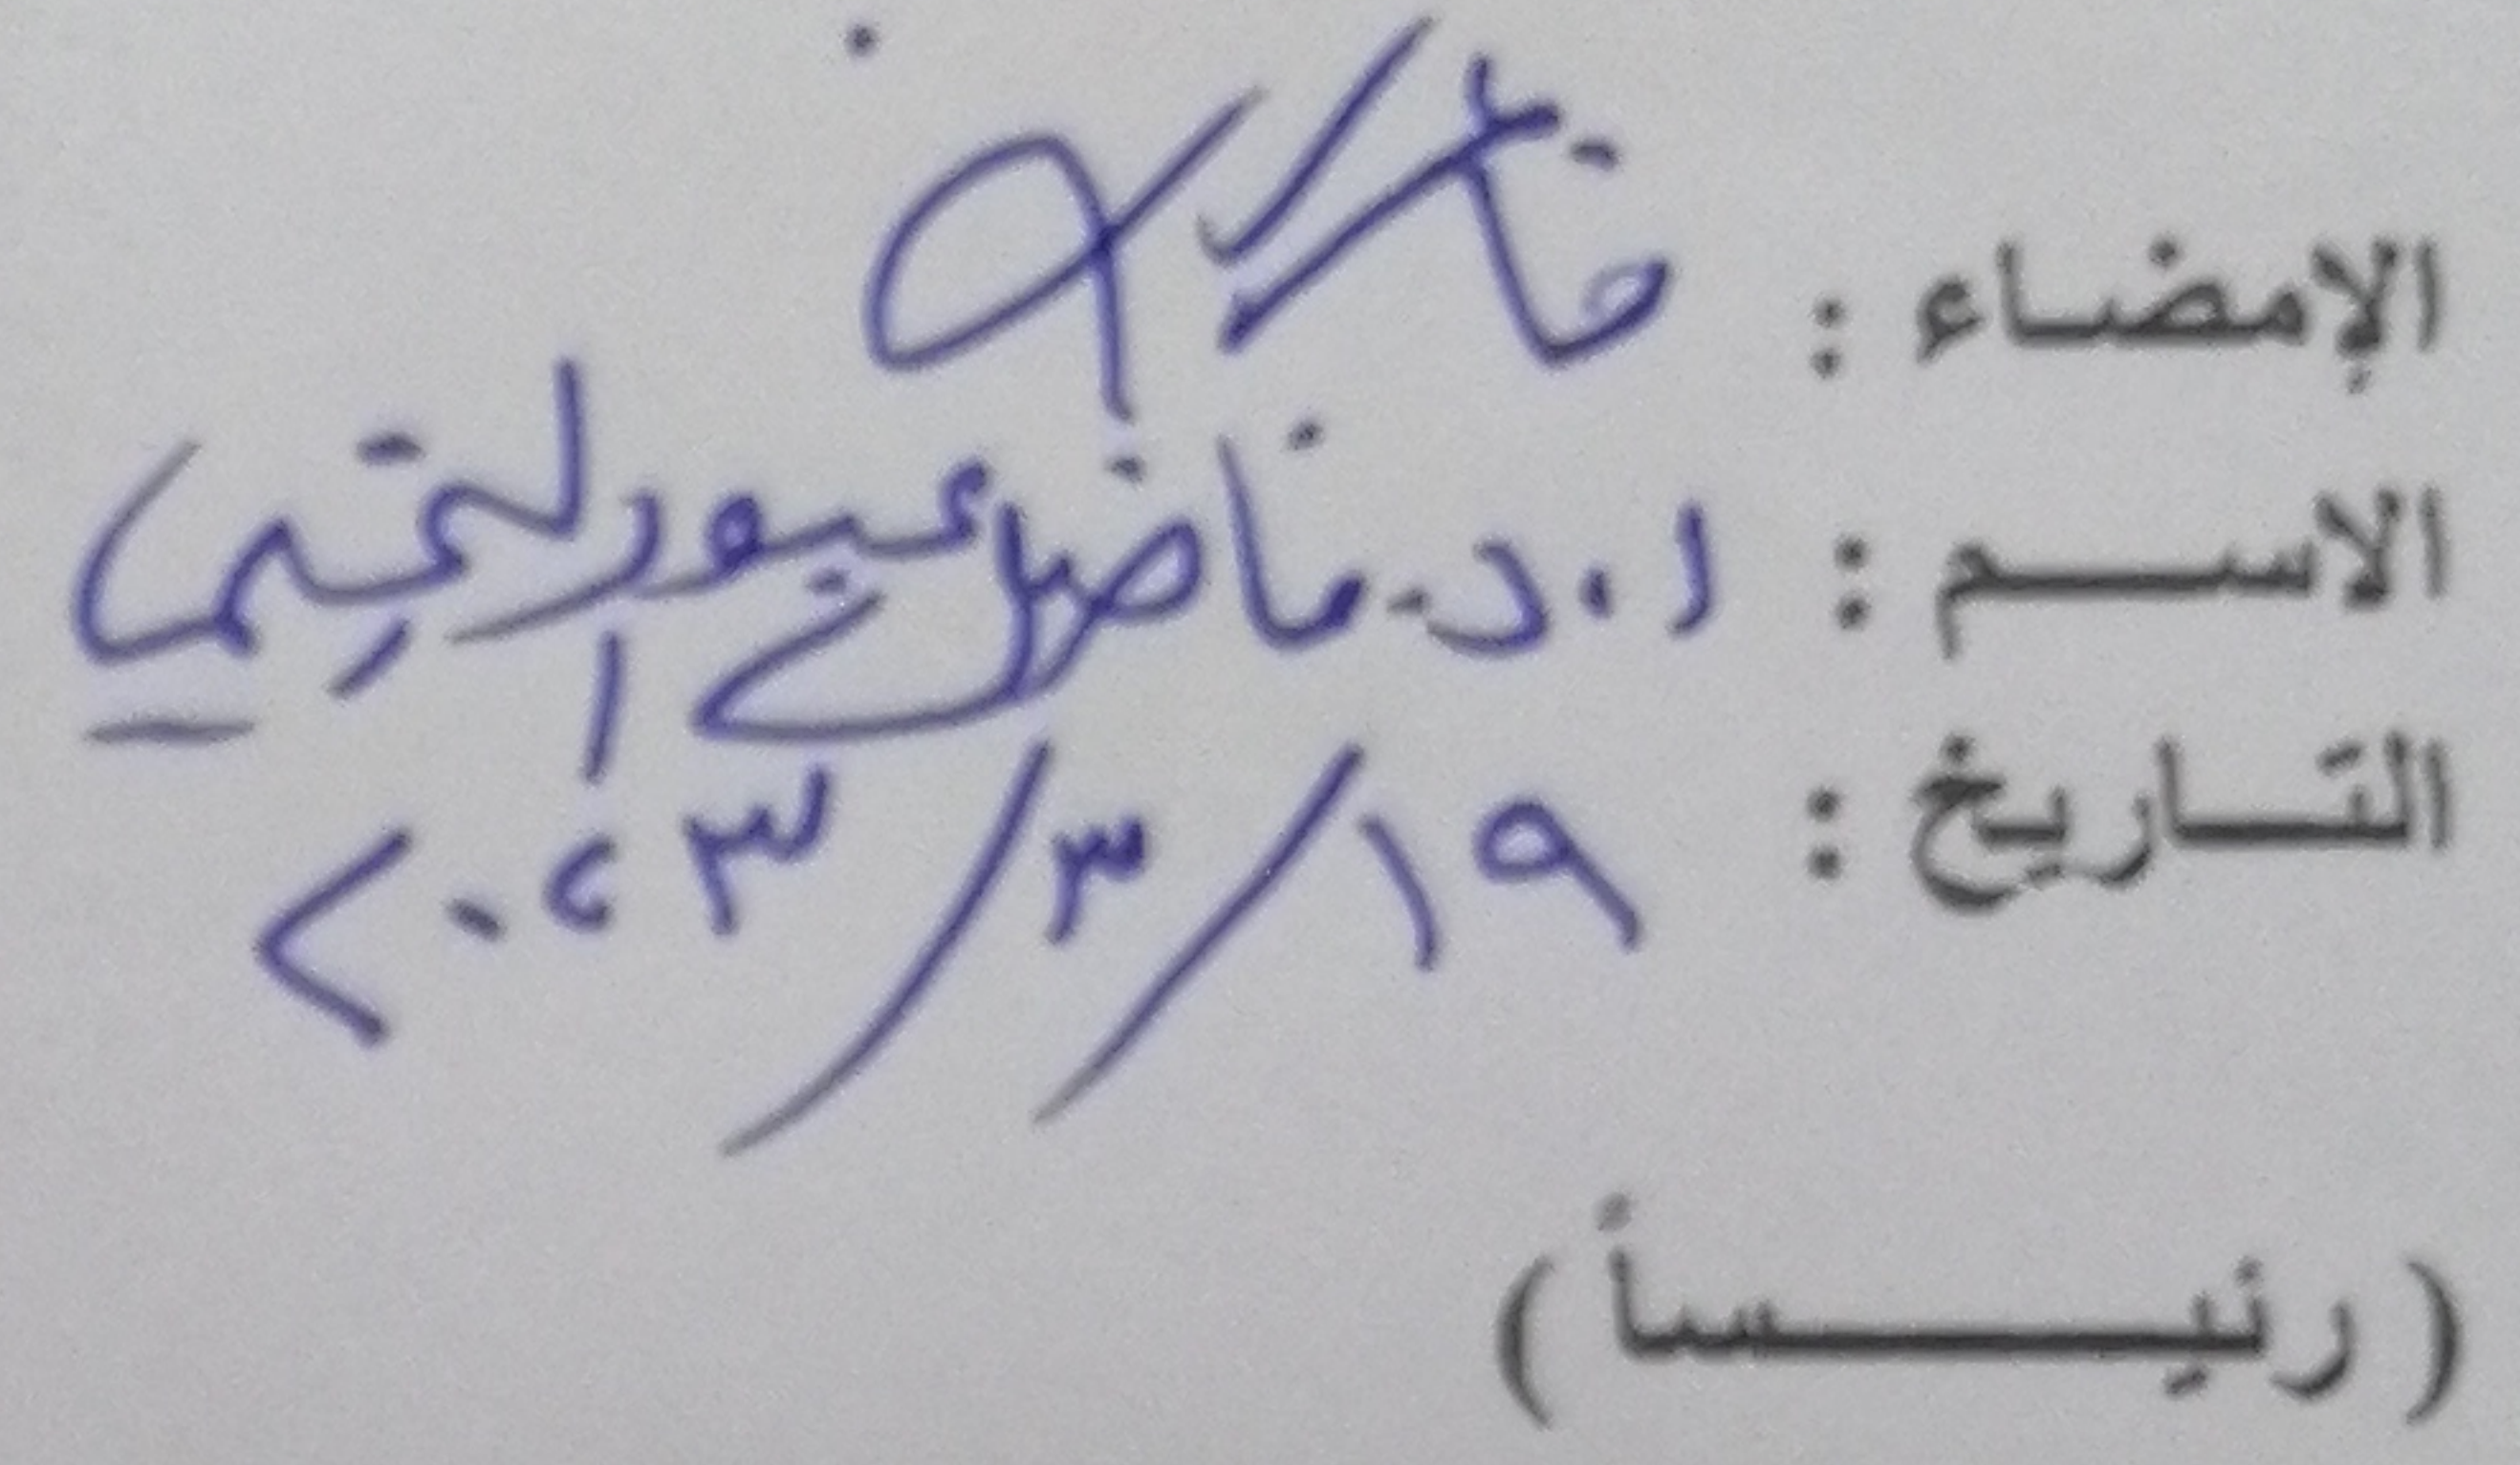 الإمضاء :
الاسم : ا.د. فاضل عبود التميمي
التاريخ : ١٩/٣/٢٠٢٣
(رئيساً)